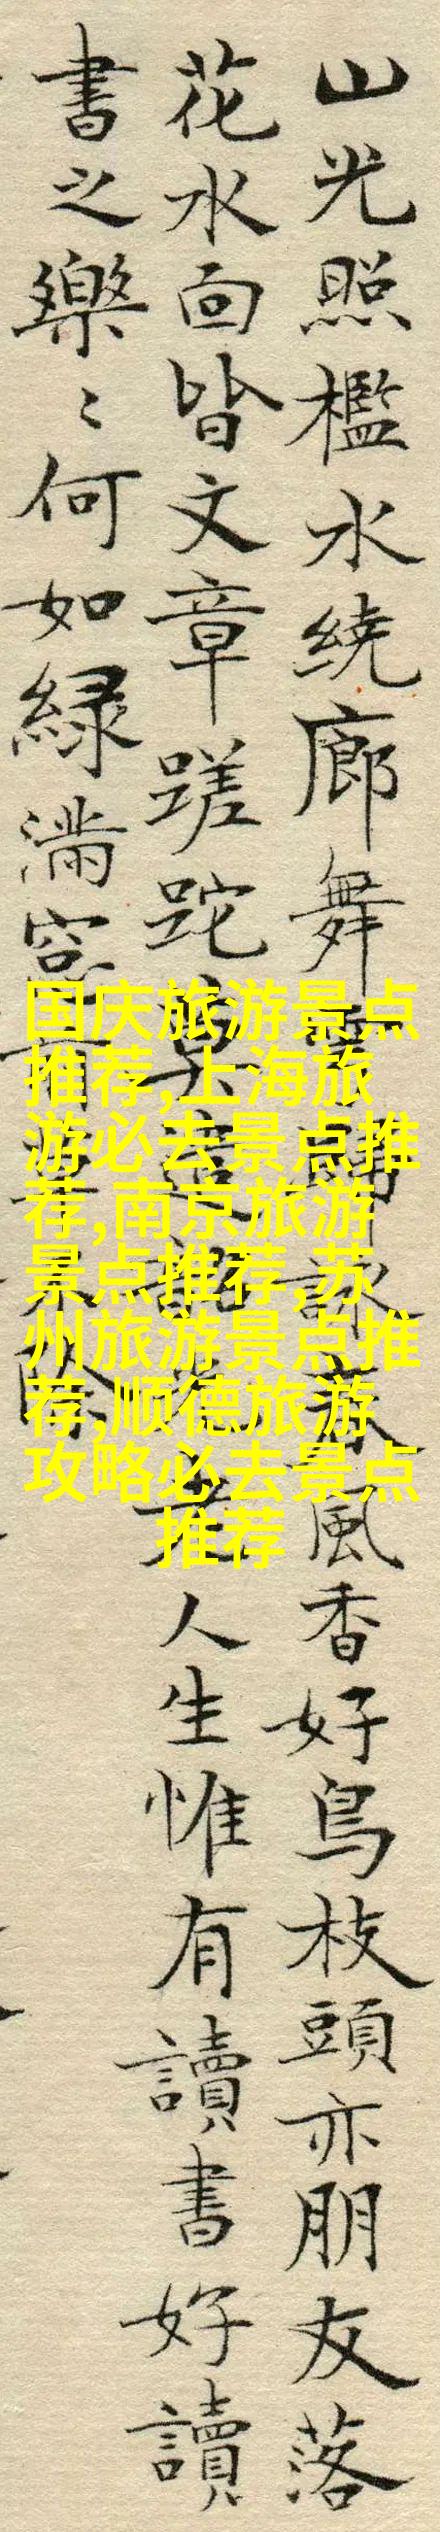 山光照檻水繞廊舞雩歸詠春風香好鳥枝頭亦朋友落
花水面皆文章蹉跎莫遣韶光老人生惟有讀書好讀
書之樂〻何如緑滿窓前草不除
国庆旅游景点
推荐,上海旅
游必去景点推
荐,南京旅游
景点推荐,苏
州旅游景点推
荐,顺德旅游
攻略必去景点
推荐